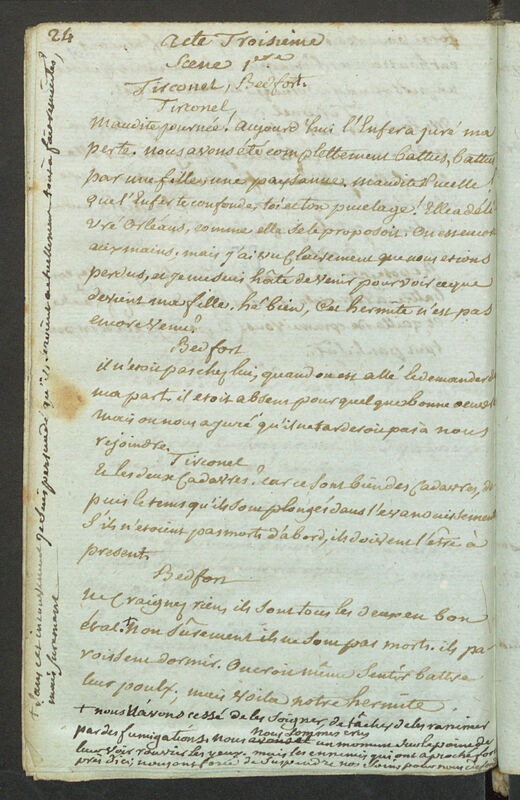 24
Acte Troisieme
Scene 1ere
Tirconel, Bedfort.
Tirconel
Maudite journée! aujourd'hui l'Enfer a juré ma
perte. nous avons été complettement battus, battus
par une fille, une paysanne. maudite Pucelle!
que l'Enfer te confonde, toi et ton pucelage! Elle a déli
vré Orléans, comme elle se le proposoit. On est encor
aux mains. mais j'ai vu clairement que nous etions
perdus, et je me suis hâté de venir pour voir ce que
devient ma fille. hé bien, Cet hermite n'est pas
encore venu?
Bedfort
il n'etoit pas chez lui, quand on est allé le demander de
ma part. il etoit absent pour quelque bonne oeuvre
mais on nous a juré qu'il ne tarderoit pas à nous
rejoindre.
Tirconel
Et les deux Cadavres? car ce sont bien des Cadavres, de
puis le tems qu'ils sont plongés dans l'evanouissement
S'ils n'etoient pas morts d'abord, ils doivent l'être à
present.
Bedfort
ne Craignez rien, ils sont tous les deux en bon
état. + Non sûrement ils ne sont pas morts. ils pa
roissent dormir. On croit même sentir battre
leur poulx, mais voila notre hermite.
+ nous n'avons cessé de les soigner, de tâcher de les ranimer
par des fumigations. nous nous sommes crus un moment sur le point de
leur voir rouvrir les yeux. mais les ennemis, qui ont aproché fort
près d'ici, nous ont forcé de suspendre nos soins pour nous
+ sans cet inconvenient je suis persuadé qu'ils seroient actuellement tout à fait
mais surement